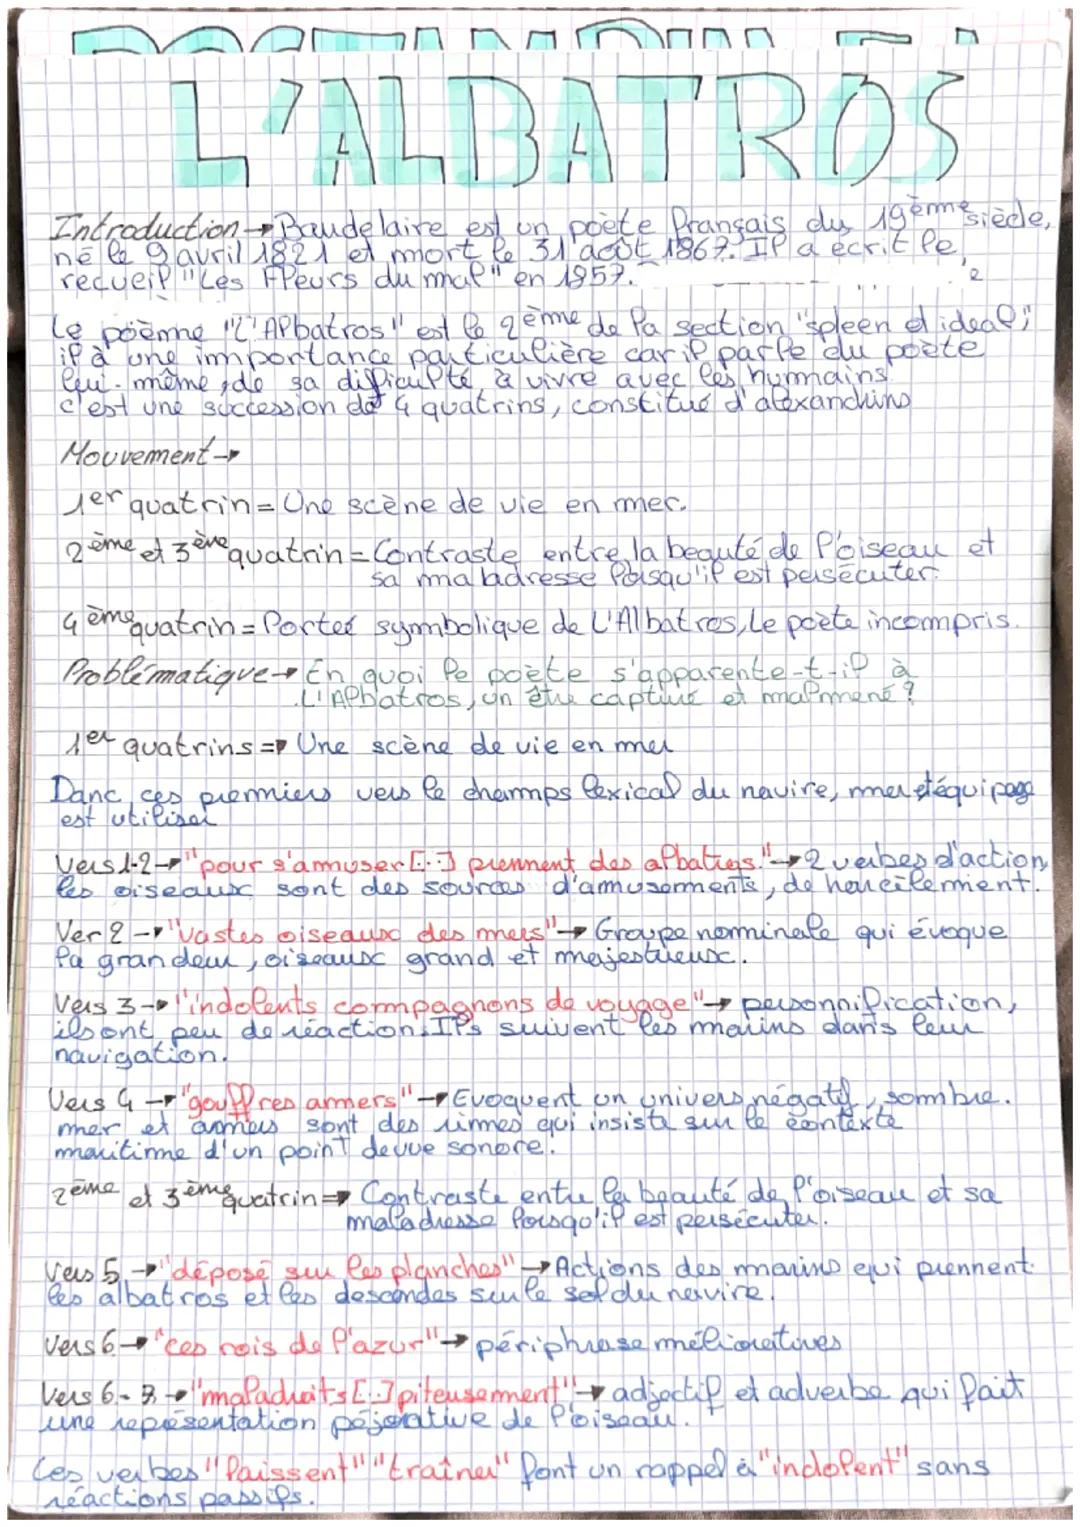 L'ALBATROS
Introduction → Baudelaire est un poète français du 19ème siècle,
né le 9 avril 1821 et mort le 31 août 1867. Il a écrit le
recueil "Les Fleurs du mal" en 1957.
Le poème "L'Albatros" est le 2ème de la section "spleen et ideal";
il à une importance particulière car il parle du poète
lui-même, de sa difficulté à vivre avec les humains.
c'est une succession de 4 quatrins, constitué d'alexandrins
Mouvement →
1er quatrin = Une scène de vie en mer.
2ème et 3ème quatrin = Contraste entre la beauté de l'oiseau et
sa maladresse lorsqu'il est persécuter.
4ème quatrin = Porteé symbolique de L'Albatros, Le poète incompris.
Problématique → En quoi le poète s'apparente-t-il à
L'Albatros, un être capturé et malmené ?
1er quatrins => Une scène de vie en mer
Danc ces premiers vers le champs lexical du navire, mer et équipage
est utiliser
Vers 1-2 → "pour s'amuser [...] prennent des albatros." → 2 verbes d'action,
les oiseaux sont des sources d'amusements, de harcèlement.
Ver 2 → "Vastes oiseaux des mers" → Groupe nominale qui évoque
la grandeur, oiseaux grand et majestueux.
Vers 3 → "indolents compagnons de voyage" → personnification,
ils ont peu de réaction. Ils suivent les marins dans leur
navigation.
Vers 4 → "gouffres amers" → Evoquent un univers négatif, sombre.
mer et amers sont des rimes qui insiste sur le contexte
maritime d'un point de vue sonore.
2ème et 3ème quatrin => Contraste entre la beauté de l'oiseau et sa
maladresse lorsqu'il est persécuter.
Vers 5 → "déposé sur les planches" → Actions des marins qui prennent
les albatros et les descendes sur le sol du navire.
Vers 6 → "ces rois de l'azur" → périphrase mélioratives
Vers 6-7 → "maladroits [...] piteusement" → adjectif et adverbe qui fait
une représentation péjorative de l'oiseau.
Les verbes "laissent" "traîner" font un rappel à "indolent" sans
réactions passifs.